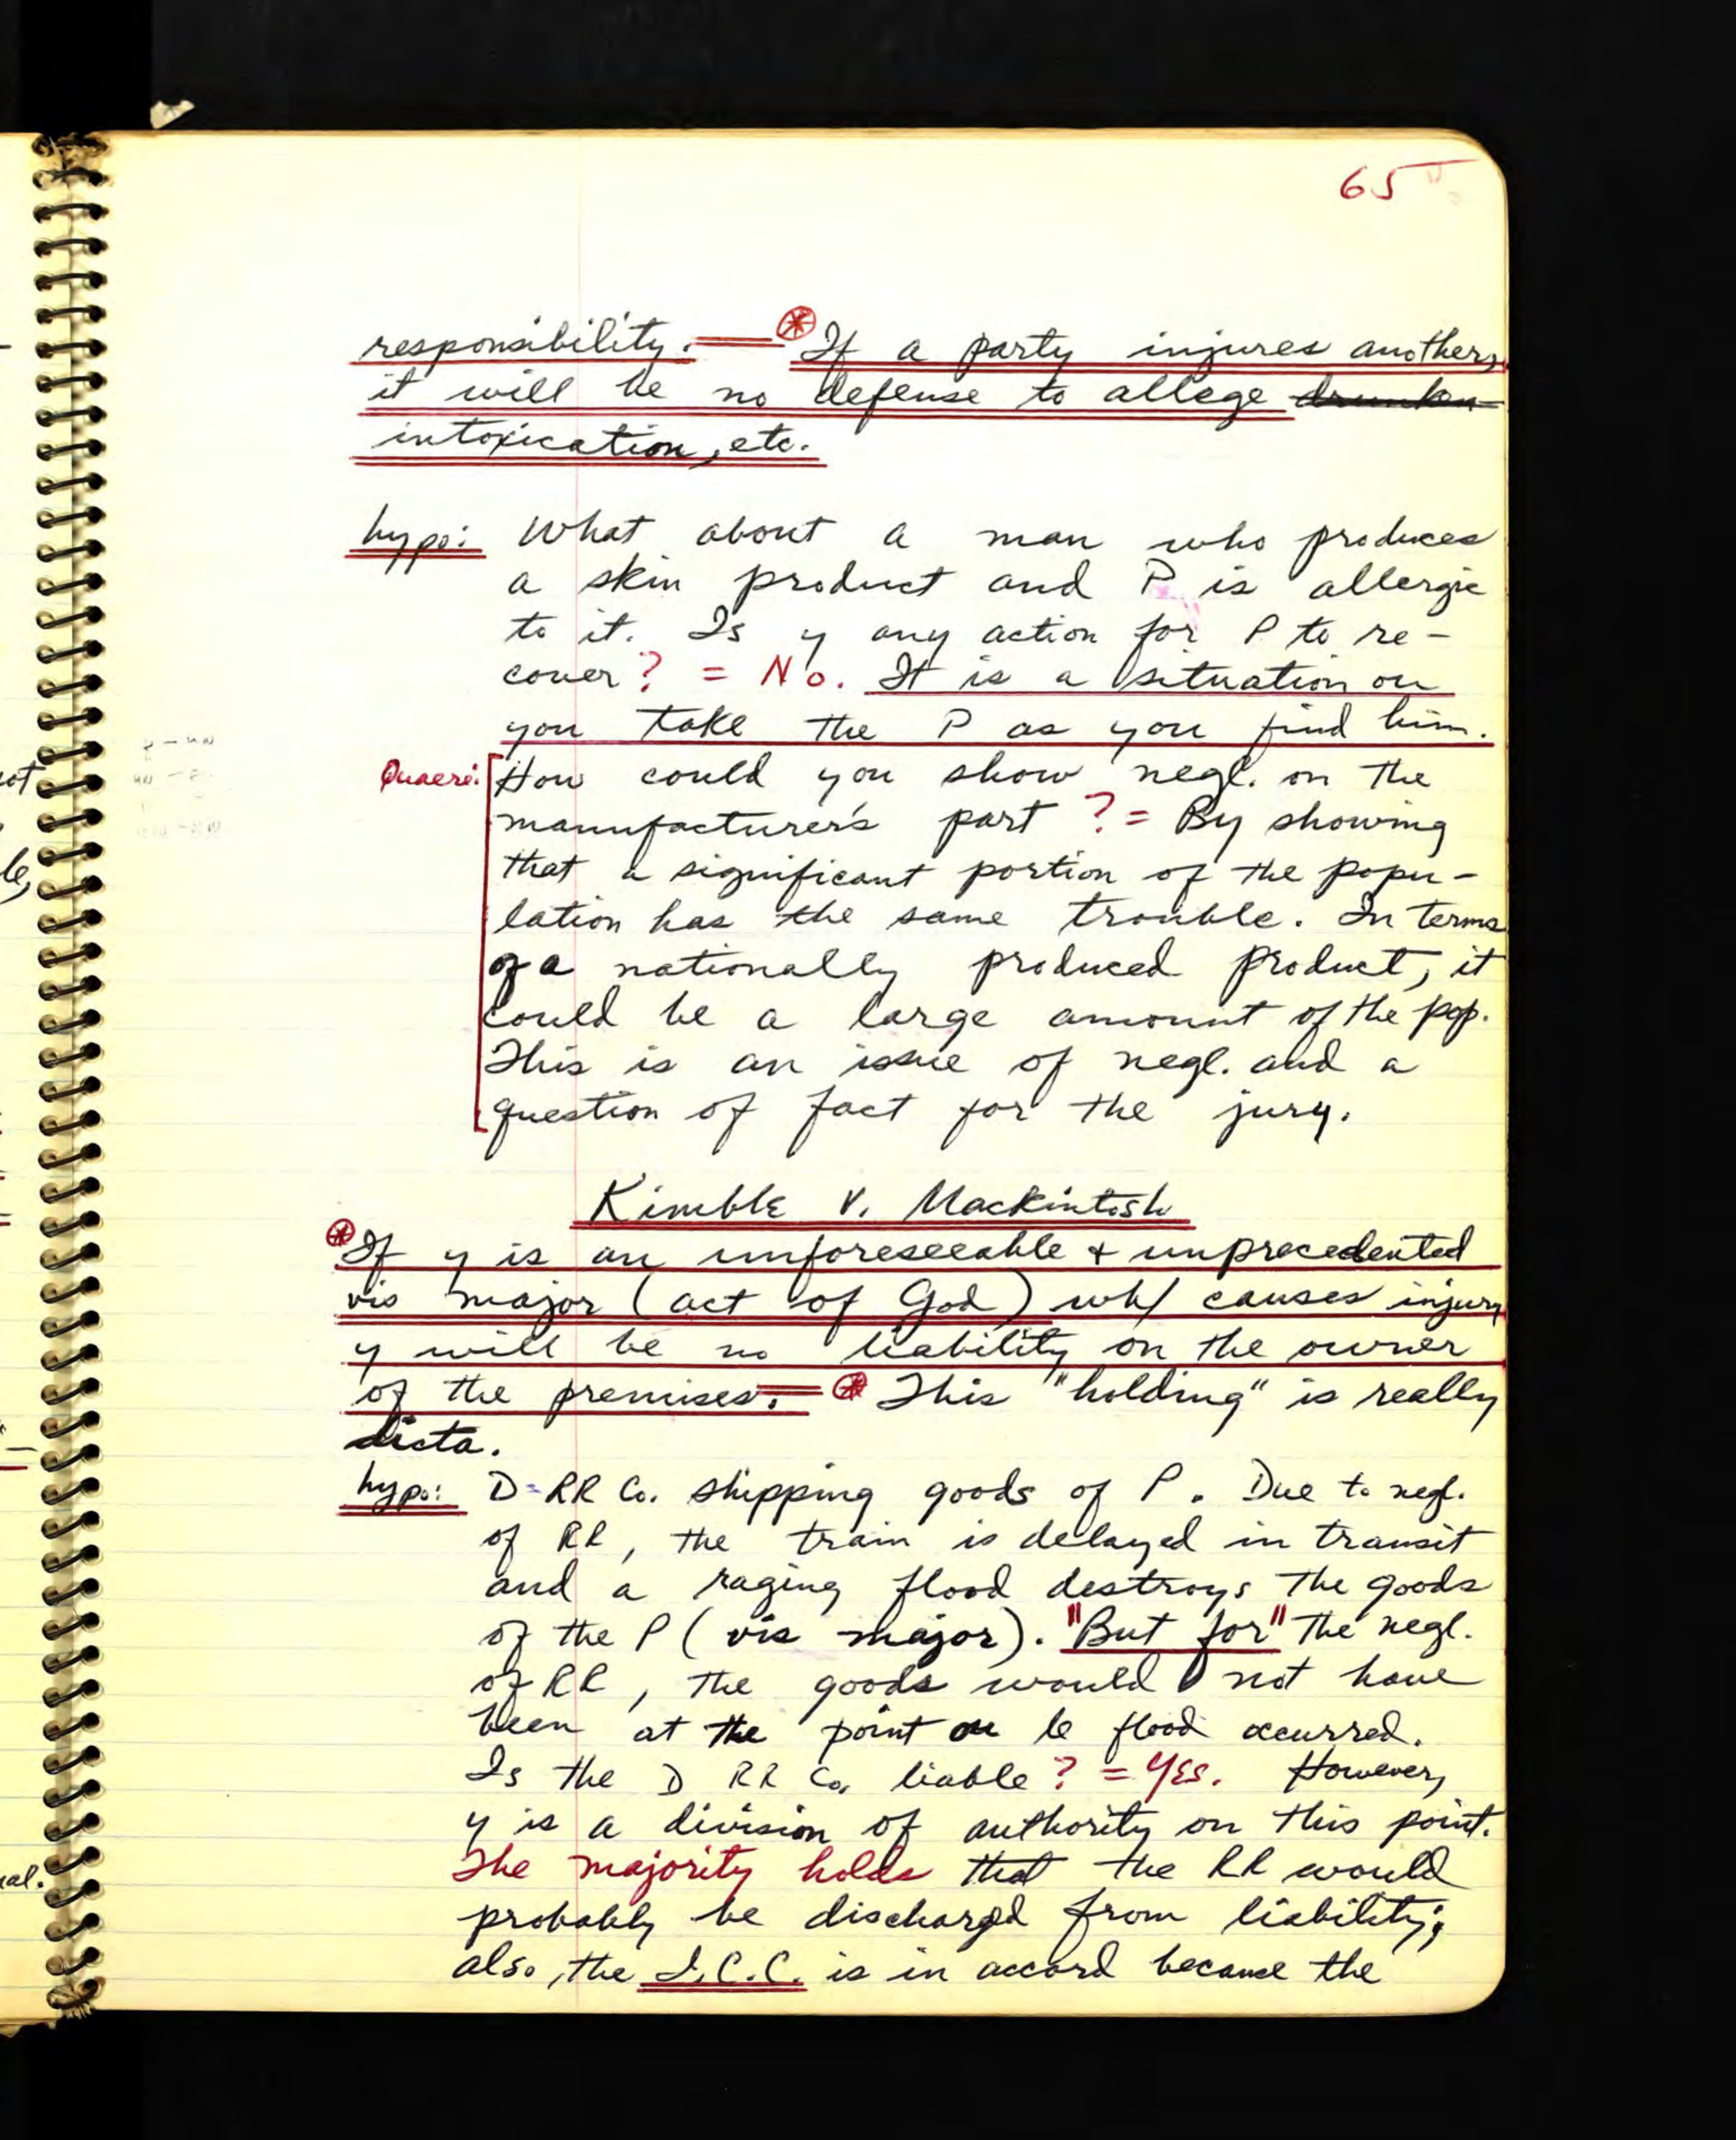 65
responsibility. — ⊛ If a party injures another,
it will be no defense to allege drunken
intoxication, etc.
hypo: What about a man who produces
a skin product and P is allergic
to it. Is y any action for P to re-
cover? = No. It is a situation ou
you take the P as you find him.
Quaere: How could you show negl. on the
manufacturer's part? = By showing
that a significant portion of the popu-
lation has the same trouble. In terms
of a nationally produced product, it
could be a large amount of the pop.
This is an issue of negl. and a
question of fact for the jury.
Kimble v. Mackintosh
⊛ If y is an unforeseeable + unprecedented
vis major (act of God) wh/ causes injury
y will be no liability on the owner
of the premises. = ⊛ This "holding" is really
dicta.
hypo: D=RR Co. shipping goods of P. Due to negl.
of RR, the train is delayed in transit
and a raging flood destroys the goods
of the P (vis major). "But for" the negl.
of RR, the goods would not have
been at the point ou le flood occurred.
Is the D RR Co. liable? = YES. However,
y is a division of authority on this point.
The majority holds that the RR would
probably be discharged from liability;
also, the I.C.C. is in accord because the
ot
le,
cal.